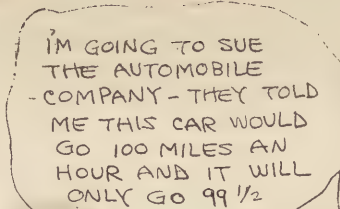 I'M GOING TO SUE
THE AUTOMOBILE
-COMPANY-THEY TOLD
ME THIS CAR WOULD
GO 100 MILES AN
HOUR AND IT WILL
ONLY GO 99 1/2